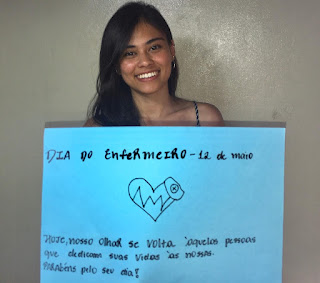 DIA DO ENFERMEIRO - 12 de maio
Hoje, nosso olhar se volta àquelas pessoas
que dedicam suas vidas às nossas.
PARABÉNS pelo seu dia!